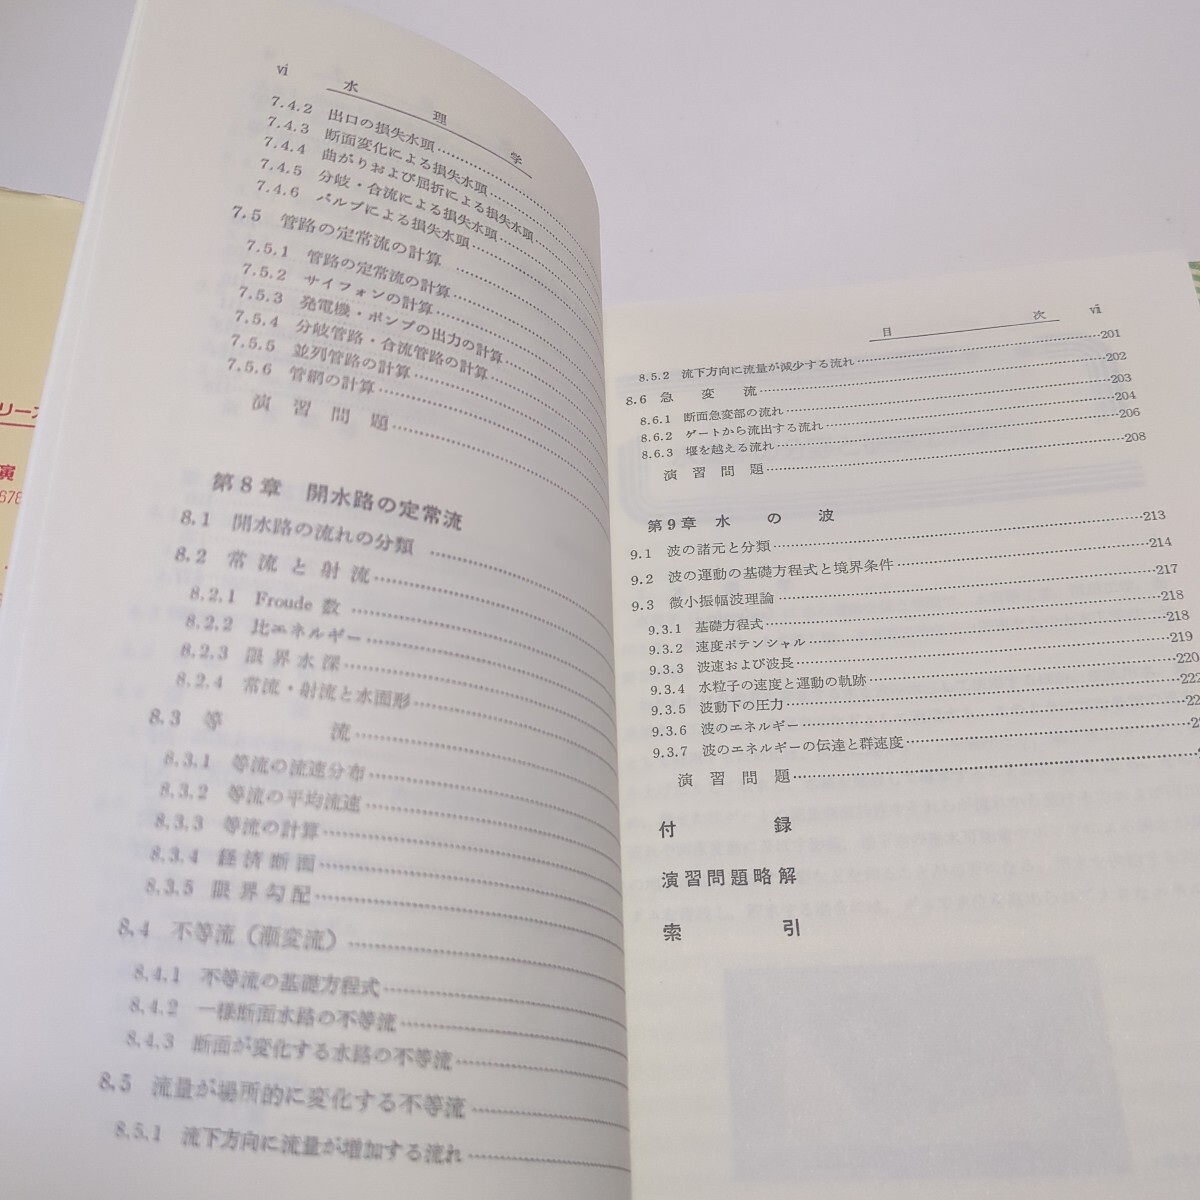 リー
演
676
vi 水理学
7.4.2 出口の損失水頭
7.4.3 断面変化による損失水頭
7.4.4 曲がりおよび屈折による損失水頭
7.4.5 分岐・合流による損失水頭
7.4.6 バルブによる損失水頭
7.5 管路の定常流の計算
7.5.1 管路の定常流の計算
7.5.2 サイフォンの計算
7.5.3 発電機・ポンプの出力の計算
7.5.4 分岐管路・合流管路の計算
7.5.5 並列管路の計算
7.5.6 管網の計算
演習問題
第8章 開水路の定常流
8.1 開水路の流れの分類
8.2 常流と射流
8.2.1 Froude 数
8.2.2 比エネルギー
8.2.3 限界水深
8.2.4 常流・射流と水面形
8.3 等流
8.3.1 等流の流速分布
8.3.2 等流の平均流速
8.3.3 等流の計算
8.3.4 経済断面
8.3.5 限界勾配
8.4 不等流（漸変流）
8.4.1 不等流の基礎方程式
8.4.2 一様断面水路の不等流
8.4.3 断面が変化する水路の不等流
8.5 流量が場所的に変化する不等流
8.5.1 流下方向に流量が増加する流れ
目次 vii
8.5.2 流下方向に流量が減少する流れ 201
8.6 急変流 202
8.6.1 断面急変部の流れ 203
8.6.2 ゲートから流出する流れ 204
8.6.3 堰を越える流れ 206
演習問題 208
第9章 水の波
9.1 波の諸元と分類 213
9.2 波の運動の基礎方程式と境界条件 214
9.3 微小振幅波理論 217
9.3.1 基礎方程式 218
9.3.2 速度ポテンシャル 218
9.3.3 波速および波長 219
9.3.4 水粒子の速度と運動の軌跡 220
9.3.5 波動下の圧力 222
9.3.6 波のエネルギー
9.3.7 波のエネルギーの伝達と群速度
演習問題
付録
演習問題略解
索引